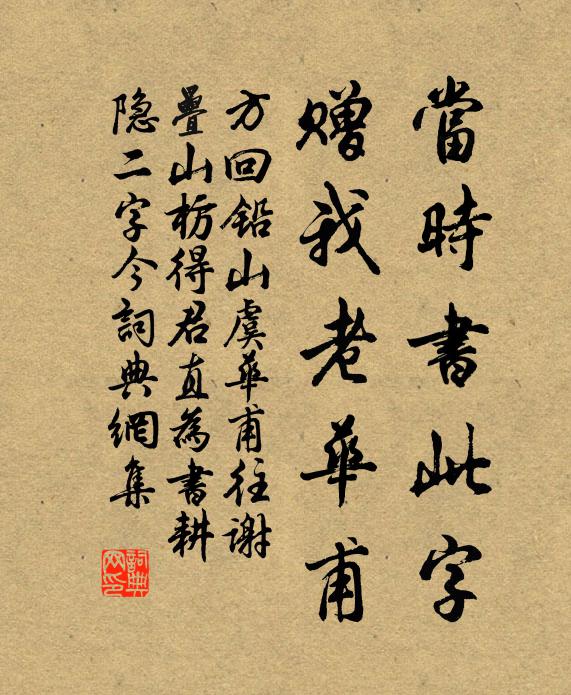 當時書此字
贈我老華甫
方回鉛山虞華甫往謝
疊山枋得君直為書耕
隐二字今詞典網集
詞典
网印